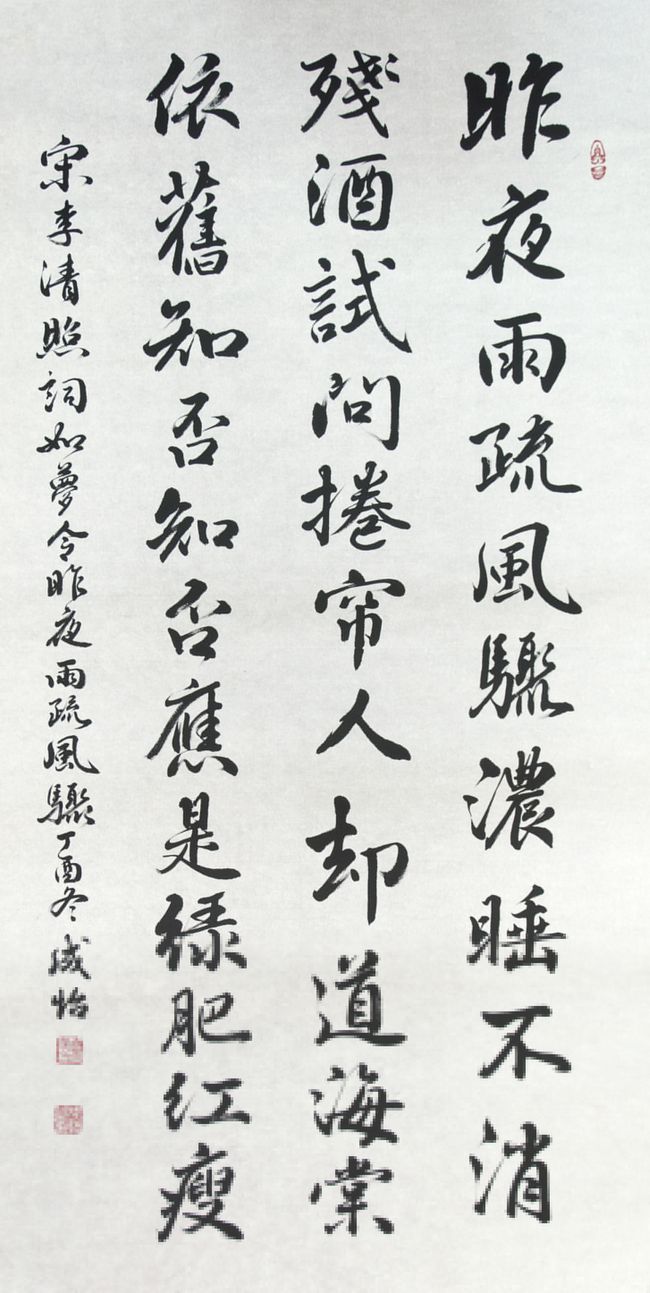 昨夜雨疏風驟濃睡不消
殘酒試問捲帘人却道海棠
依舊知否知否應是綠肥紅瘦
宋李清照詞如夢令昨夜雨疏風驟丁酉冬成怡